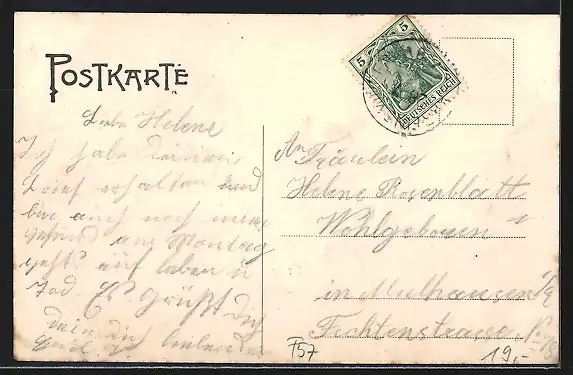 POSTKARTE
5 5
DEUTSCHES REICH
Liebe Helene
Ich habe deinen
Brief erhalten und
bin auch noch immer
gesund am Montag
gehts auf Leben u
Tod. Es Grüßt Dich
dein dich liebender
An Fräulein
Helene Rosenblatt
Wohlgeboren
in Mulhausen i/E
Fichtenstrasse No
18
F57
19,-